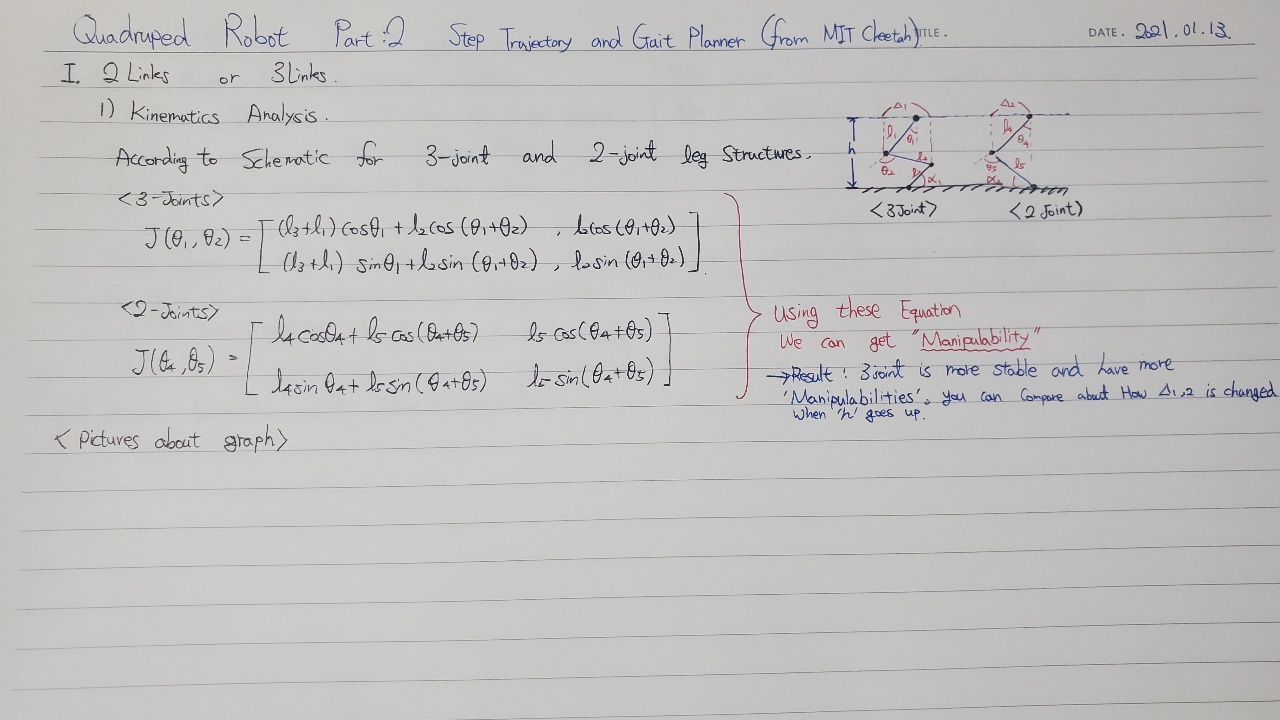 Quadruped Robot Part.2 Step Trajectory and Gait Planner (from MIT Cheetah) TITLE. DATE. 2021.01.13.
I. 2 Links or 3 Links.
1) Kinematics Analysis.
According to Schematic for 3-joint and 2-joint leg Structures.
<3-Joints>
J(θ1, θ2) = [ (l3+l1) cosθ1 + l2cos (θ1+θ2) , l2cos (θ1+θ2)
(l3+l1) sinθ1 + l2sin (θ1+θ2) , l2sin (θ1+θ2) ]
<2-Joints>
J(θ4, θ5) = [ l4cosθ4 + l5 cos(θ4+θ5) l5 cos(θ4+θ5)
l4sinθ4 + l5 sin(θ4+θ5) l5 sin(θ4+θ5) ]
Δ1 Δ2
h l1 θ1 l4 θ4
θ2 l2 l3 α1 θ5 l5 α2
<3 Joint> <2 Joint>
Using these Equation
We can get "Manipulability"
→Result : 3joint is more stable and have more
'Manipulabilities'. you can Compare about How Δ1,2 is changed
when 'h' goes up.
<Pictures about graph>